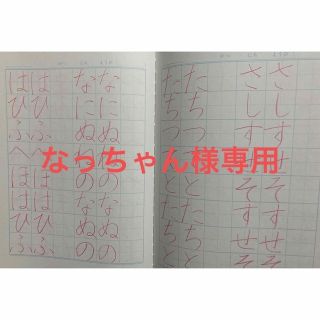 さしすせそすせそ
さしすせそすせそ
たちつとたちと
たちつとたちと
なにぬのなぬの
なにぬのなぬの
はひふへほはひふ
はひふへほはひふ
なっちゃん様専用